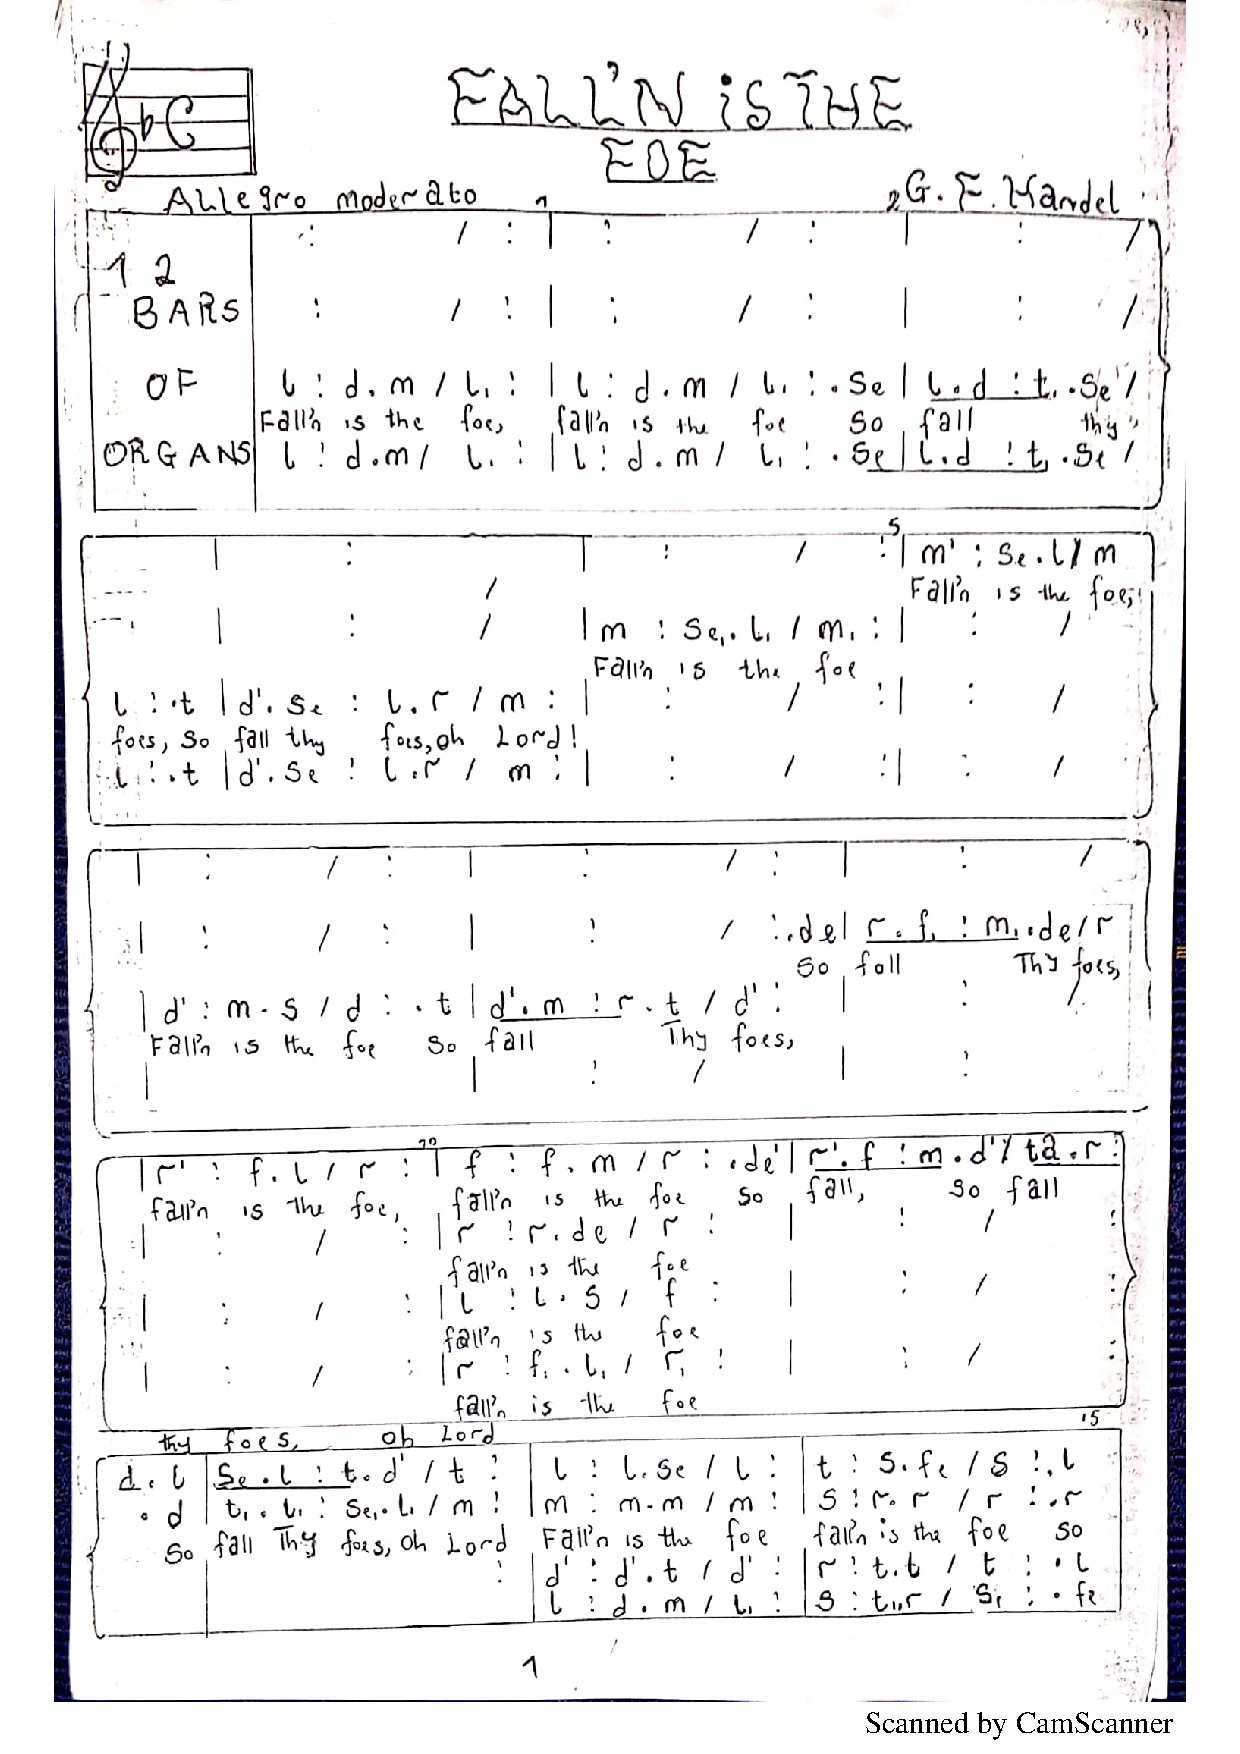 FALL'N iS THE
FOE
♭C
Allegro moderato
G. F. Handel
1 2
BARS
OF
ORGANS
1 2
: / : | : / : | : /
: / : | : / : | : /
l : d.m / l₁ : | l : d.m / l₁ : .se | l.d : t₁.se /
Fall'n is the foe, fall'n is the foe so fall thy
l : d.m / l₁ : | l : d.m / l₁ : .se | l.d : t₁.se /
5
| : / | : / : | m' : se.l / m
Fall'n is the foe,
| : / | m : se₁.l₁ / m₁ : | : /
Fall'n is the foe
l : .t | d'.se : l.r / m : | : / : | : /
foes, so fall thy foes, oh Lord!
l : .t | d'.se : l.r / m : | : / : | : /
| : / : | : / : | : /
| : / : | : / : .de | r.f₁ : m₁.de / r
So fall Thy foes,
| d' : m.s / d : .t | d'.m : r.t / d' : | : /
Fall'n is the foe so fall Thy foes,
| | : / | :
10
| r' : f.l / r : | f : f.m / r : .de' | r'.f : m.d' / ta.r :
fall'n is the foe, fall'n is the foe so fall, so fall
| : / : | r : r.de / r : | : / :
fall'n is the foe
| : / : | l : l.s / f : | : / :
fall'n is the foe
| : / : | r : f₁.l₁ / r₁ : | : / :
fall'n is the foe
15
thy foes, oh Lord
d.l | se.l : t.d' / t : | l : l.se / l : | t : s.fe / s : .l
.d | t₁.l₁ : se₁.l₁ / m : | m : m.m / m : | s : r.r / r : .r
so fall Thy foes, oh Lord Fall'n is the foe fall'n is the foe so
: | d' : d'.t / d' : | r : t.t / t : .l
l : d.m / l₁ : | s : t₁.r / s₁ : .fe
1
Scanned by CamScanner